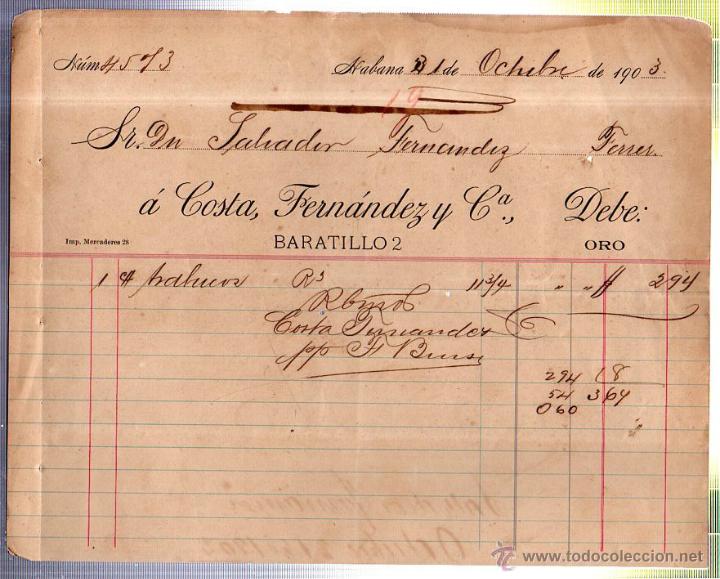 Núm 4573 Habana 31 de Octubre de 1903.
19
Sr. Dn Salvador Fernandez Ferrer
á Costa, Fernández y Cª., Debe:
Imp. Mercaderes 28 BARATILLO 2 ORO
1 R3 11 3/4 " " $ 294
Costa Fernandez C
pp F
294 18
54 369
060
todocoleccion.net